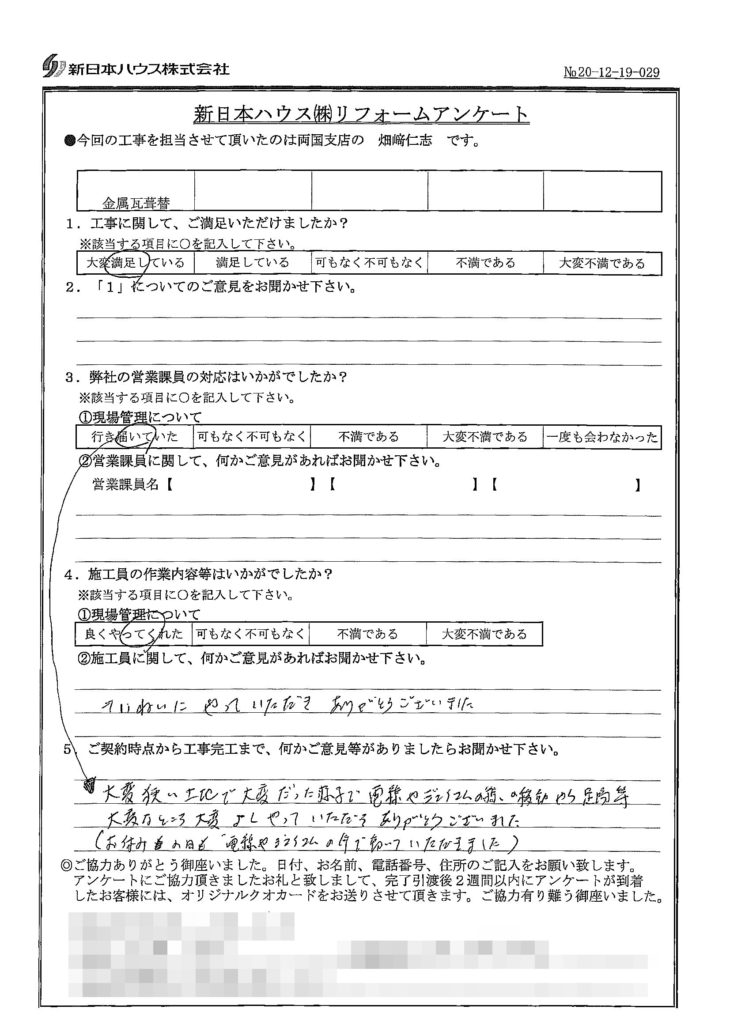 新日本ハウス株式会社
№20-12-19-029
新日本ハウス㈱リフォームアンケート
●今回の工事を担当させて頂いたのは両国支店の 畑﨑仁志 です。
金属瓦葺替
1．工事に関して、ご満足いただけましたか？
※該当する項目に○を記入して下さい。
大変満足している 満足している 可もなく不可もなく 不満である 大変不満である
2．「1」についてのご意見をお聞かせ下さい。
3．弊社の営業課員の対応はいかがでしたか？
※該当する項目に○を記入して下さい。
①現場管理について
行き届いていた 可もなく不可もなく 不満である 大変不満である 一度も会わなかった
②営業課員に関して、何かご意見があればお聞かせ下さい。
営業課員名【 】【 】【 】
4．施工員の作業内容等はいかがでしたか？
※該当する項目に○を記入して下さい。
①現場管理について
良くやってくれた 可もなく不可もなく 不満である 大変不満である
②施工員に関して、何かご意見があればお聞かせ下さい。
ていねいに やって いただき ありがとうございました
5．ご契約時点から工事完工まで、何かご意見等がありましたらお聞かせ下さい。
大変狭い土地で大変だった様子で 電線や の移動やら足場等
大変なところ大変よくやっていただき ありがとうございました
(お休みの日も 電線や の件で動いていただきました)
◎ご協力ありがとう御座いました。日付、お名前、電話番号、住所のご記入をお願い致します。
アンケートにご協力頂きましたお礼と致しまして、完了引渡後２週間以内にアンケートが到着
したお客様には、オリジナルクオカードをお送りさせて頂きます。ご協力有り難う御座いました。